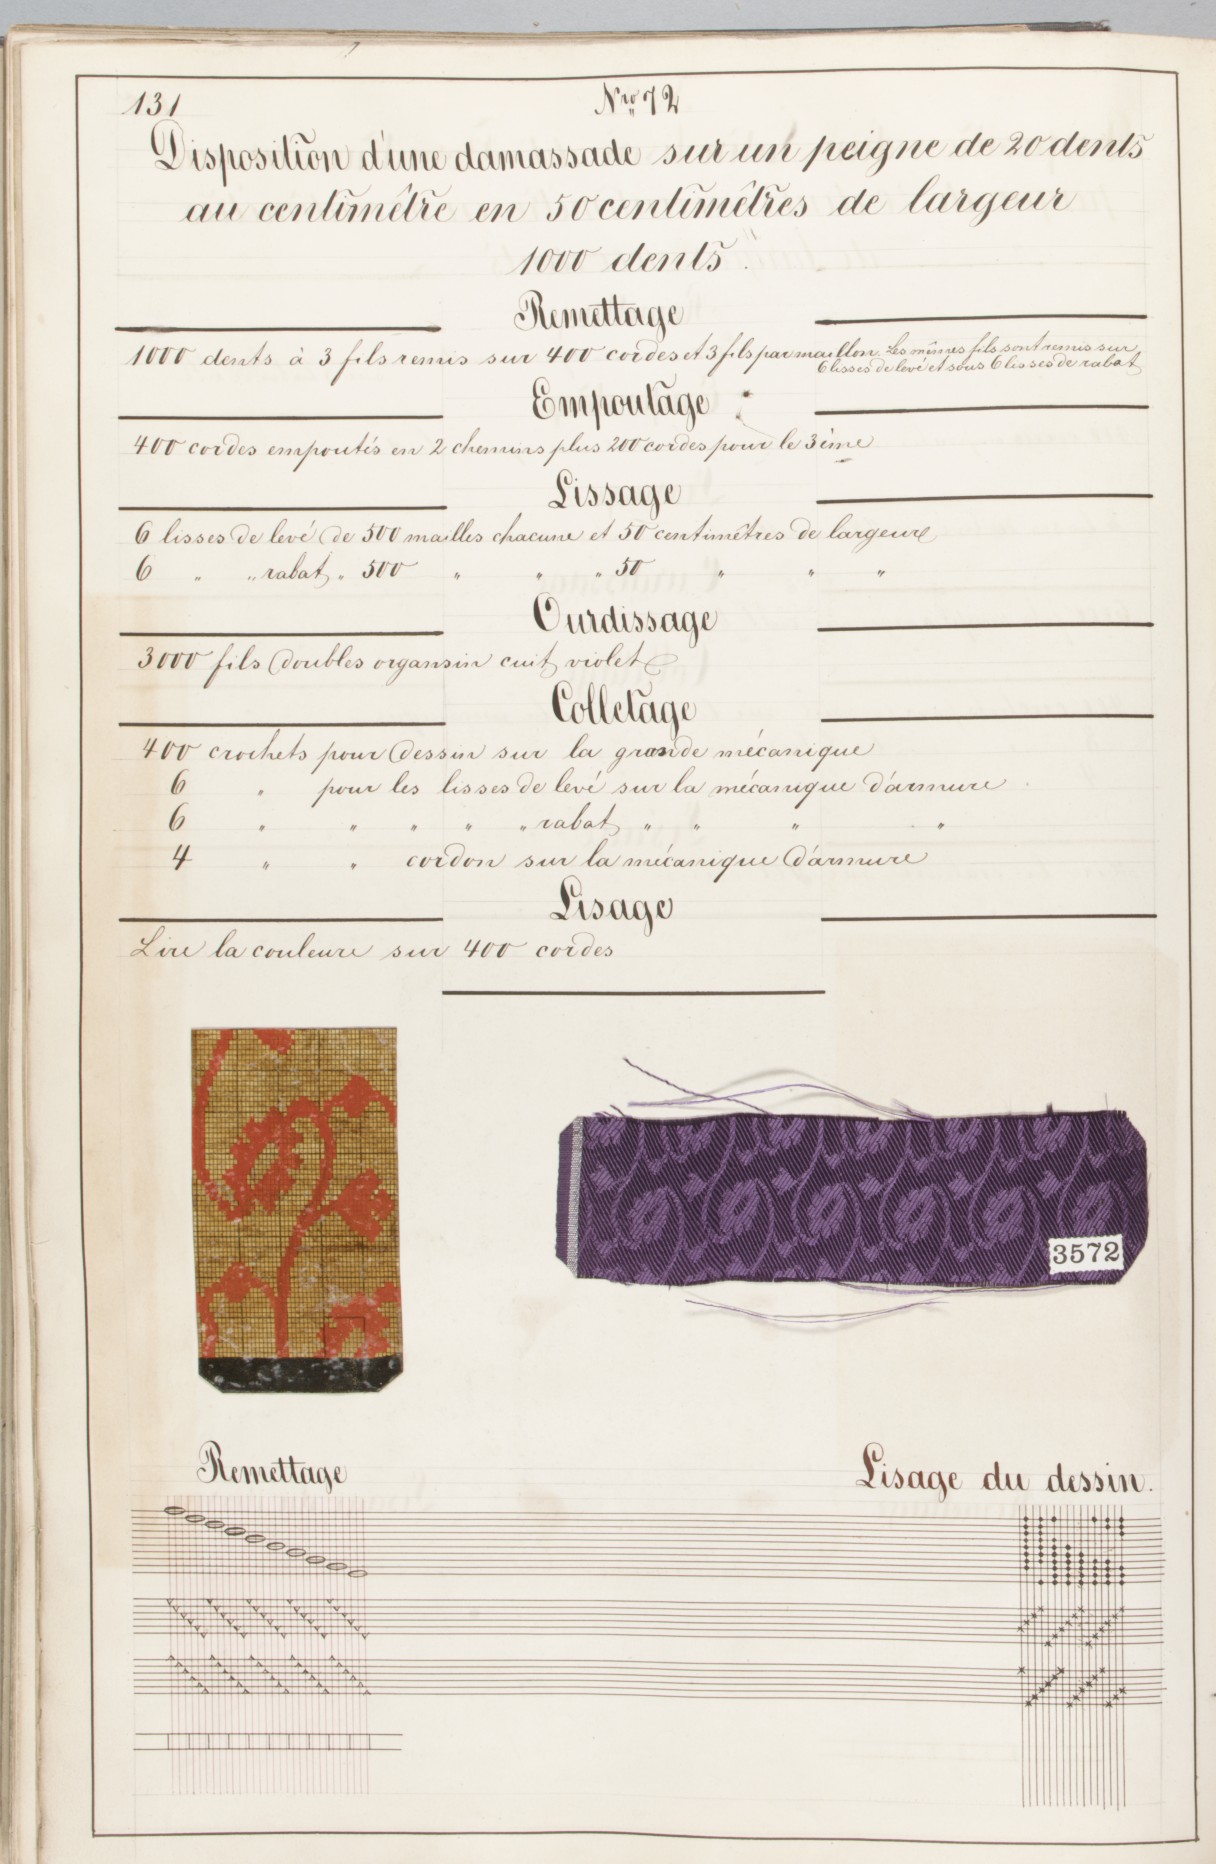 131
Nro 72
Disposition d'une damassade sur un peigne de 20 dents
au centimêtre en 50 centimêtres de largeur
1000 dents.
Remettage
1000 dents à 3 fils remis sur 400 cordes et 3 fils par maillon. Les mêmes fils sont remis sur
6 lisses de levé et sous 6 lisses de rabat
Empoutage
400 cordes empoutés en 2 chemins plus 200 cordes pour le 3ême
Lissage
6 lisses de levé de 500 mailles chacune et 50 centimêtres de largeure
6 " " rabat " 500 " " " 50 " " "
Ourdissage
3000 fils doubles organsin cuit violet
Colletage
400 crochets pour dessin sur la grande mécanique
6 " pour les lisses de levé sur la mécanique d'armure
6 " " " " " rabat " " " "
4 " " cordon sur la mécanique d'armure
Lisage
Lire la couleure sur 400 cordes
3572
Remettage
Lisage du dessin.